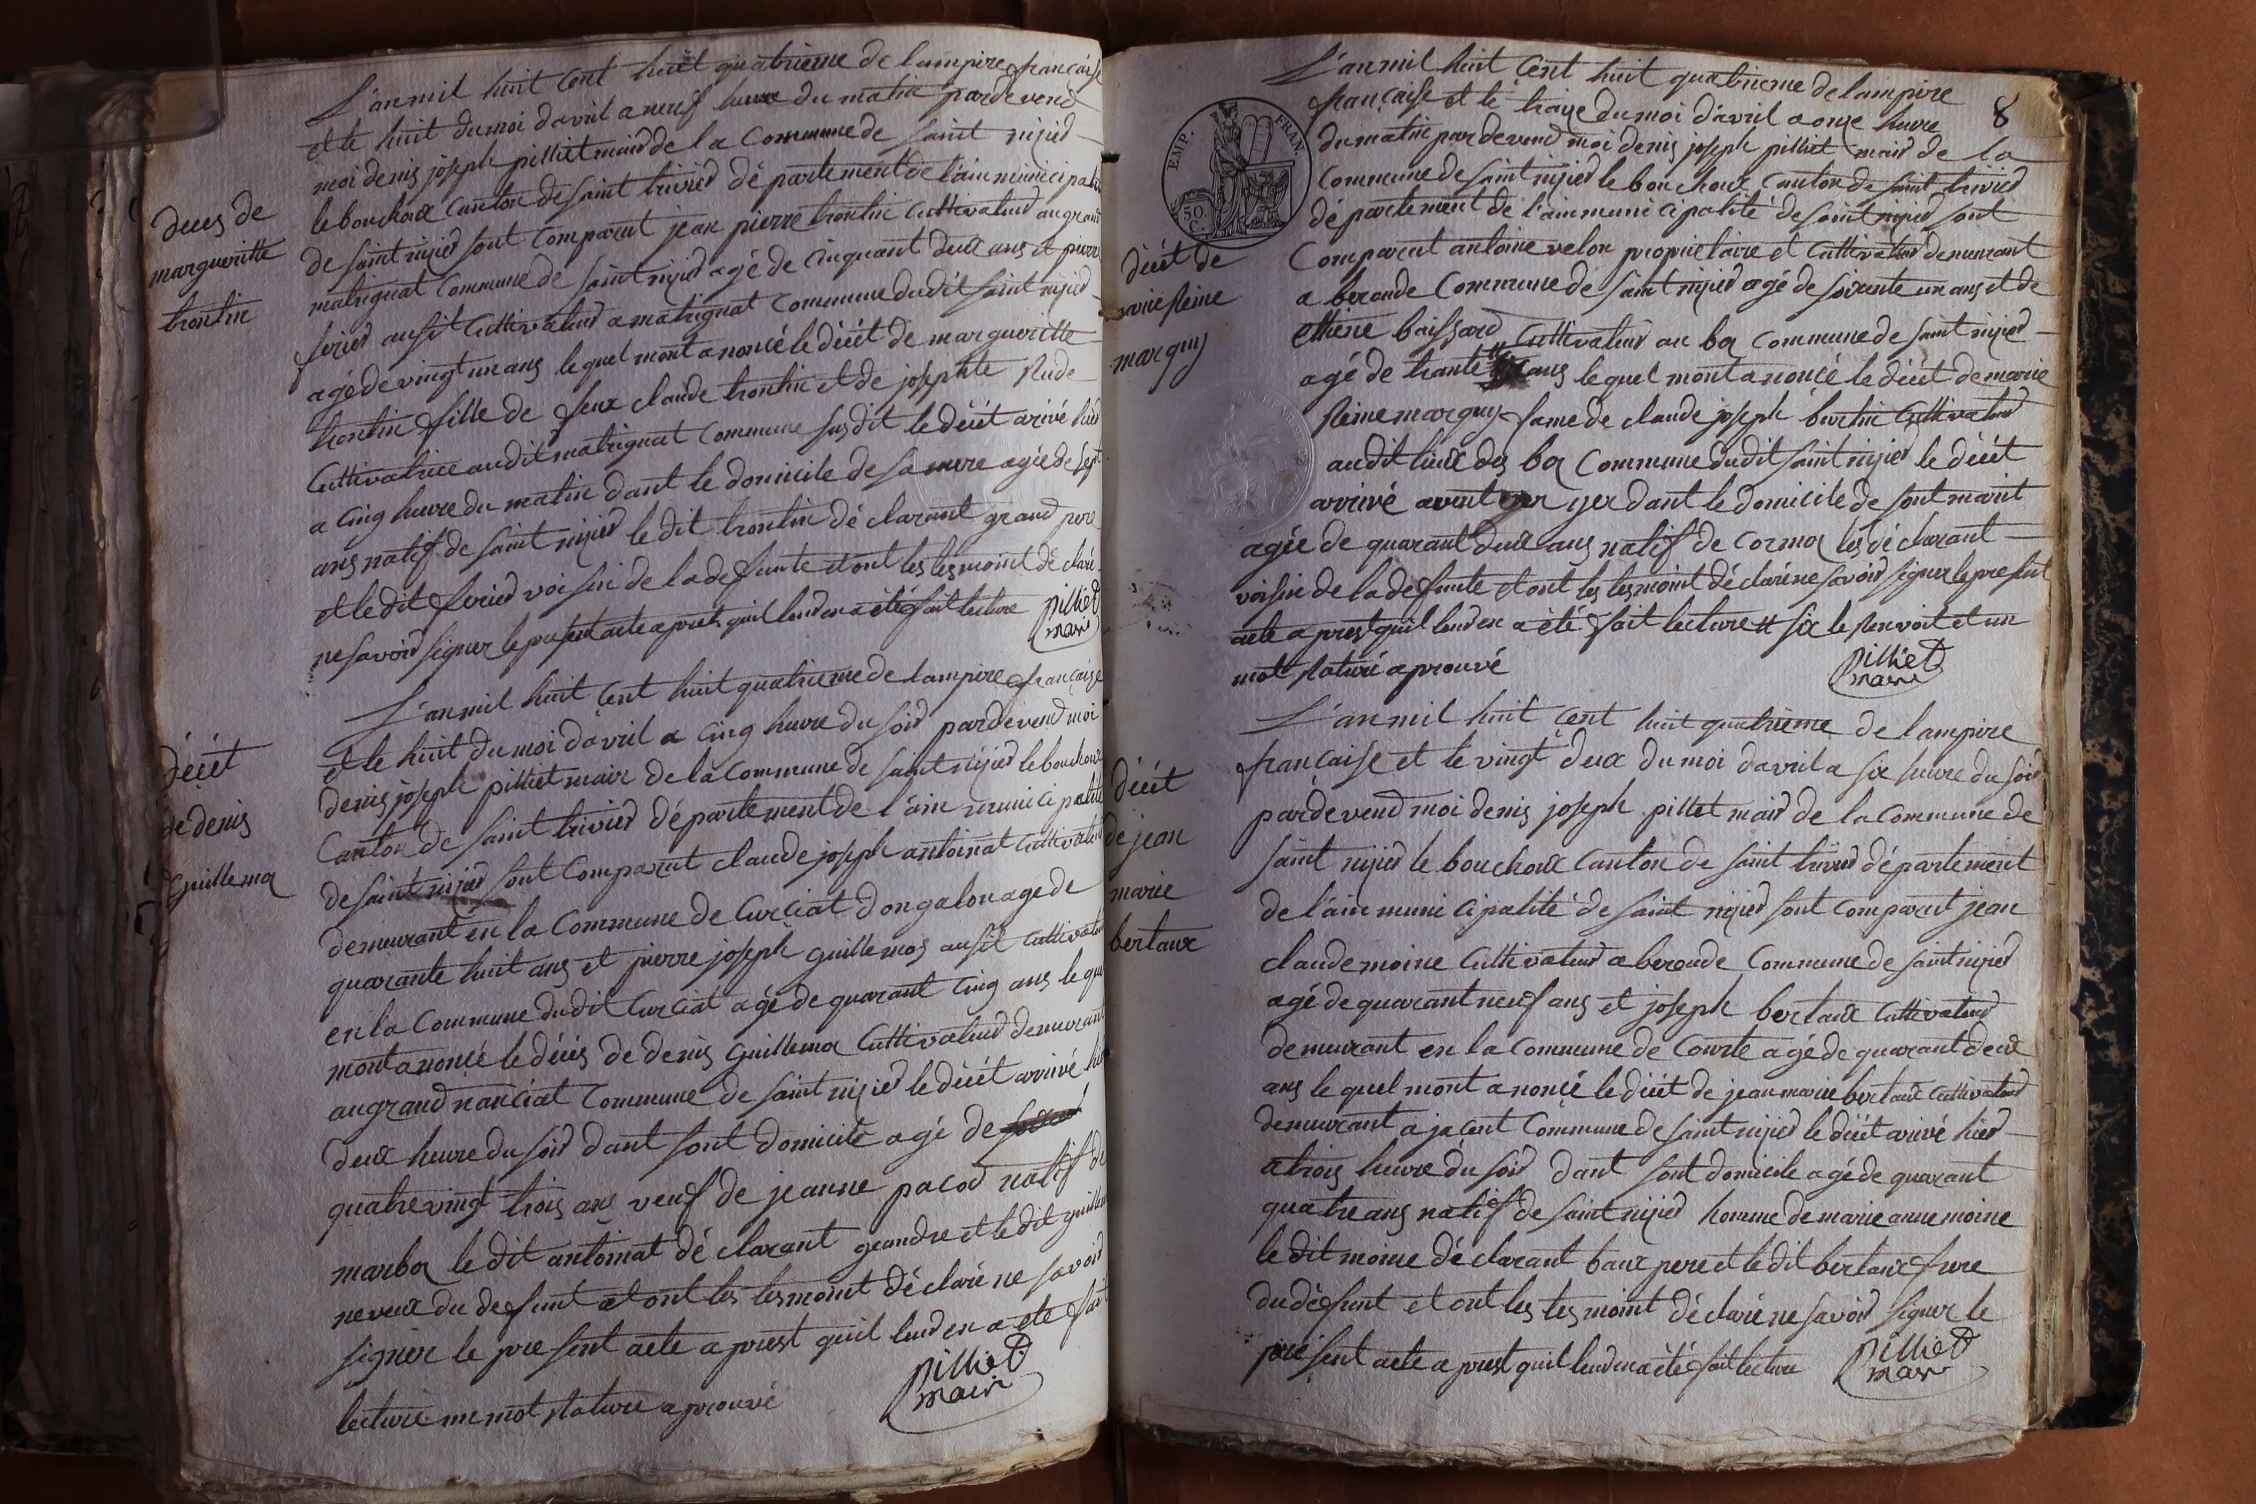 L'an mil huit cent huit quatrieme de lampire française
et le huit du moi davril a neuf heure du matin pardevend
moi denis joseph pilliet mair de la Commune de saint nijied
le bouchoux Canton de saint trivied département de l'ain municipalité
de saint nijied sont Comparut jean pierre trontin Cuttivateud au grand
matrignat Commune de saint nijied agé de Cinquant deux ans et pierre
feried ausit Cuttivateud a matrignat Commune dudit saint nijied
agé de vingt un ans le quel mont anoncé le décét de margueritte
trontin fille de feux claude trontin et de josephte Rude
Cuttivatrice audit matrignat Commune susdit le décét arivé hied
a cinq heure du matin dant le domicile de sa mere agée de sept
ans natif de saint nijied le dit trontin déclarant grand pere
et le dit feried voisin de la defunte et ont les tesmoint déclaré
ne savoid signer le present acte aprest quil leud en a été fait lecture
pilliet
mair
deces de
margueritte
trontin
L'an mil huit Cent huit quatrieme de lampire française
et le huit du moi davril a Cinq heure du soid pardevend moi
denis joseph pilliet mair de la Commune de saint nijied le bouchoux
Canton de saint trivied département de l'ain municipalité
de saint nijied sont Comparut claude joseph antoinat Cuttivateud
demeurant en la Commune de Curciat dongalon agé de
quarante huit ans et pierre joseph guillemos ausit Cuttivateud
en la Commune dudit Curciat agé de quarant Cinq ans le quel
mont anoncé le décés de denis Guillemoz Cuttivateud demeurant
au grand nanciat Commune de saint nijied le décét arrivé hied
deux heure du soid dant sont domicile agé de
quatrevingt trois ans veuf de jeanne pacod natif de
marboz le dit antoinat déclarant geandre et le dit guillemoz
neveux du defunt et ont les tesmoint déclaré ne savoid
signer le present acte aprest quil leud en a ete fait
lecture un mot Rature aprouvé
pilliet
mair
décét
de denis
Guillemoz
8
EMP. FRAN.
50.
C.
L'an mil huit Cent huit quatrieme de lampire
française et le traize du moi d'avril a onze heure
du matin pardevend moi denis joseph pilliet mair de la
Commune de saint nijied le bouchoux Canton de saint trivied
département de l'ain municipalité de saint nijied sont
Comparut antoine velon proprietaire et Cuttivateud demeurant
a beronde Commune de saint nijied agé de soixante un ans et de
ettiene boissard Cuttivateud au boz Commune de saint nijied
agé de trante ans le quel mont anoncé le décét de marie
Reine marguy fame de claude joseph burtin Cuttivateud
audit lieux des boz Commune dudit saint nijied le décét
arrivé avent yer dant le domicile de sont marit
agée de quarant deux ans natif de Cormoz les déclarant
voisin de la defunte et ont les tesmoint déclaré ne savoir signer le present
acte aprest quil leud en a été fait lecture six le Renvoit et un
mot Raturé aprouvé
pilliet
mair
décét de
marie Reine
marguy
L'an mil huit Cent huit quatrieme de lampire
française et le vingt deux du moi davril a six heure du soid
pardevend moi denis joseph pilliet mair de la Commune de
saint nijied le bouchoux Canton de saint trivied département
de l'ain municipalité de saint nijied sont Comparut jean
claude moine Cuttivateud a beronde Commune de saint nijied
agé de quarant neuf ans et joseph bertaux Cuttivateud
demeurant en la Commune de Courte agé de quarant deux
ans le quel mont anoncé le décét de jean marie bertaux Cuttivateud
demeurant a jacent Commune de saint nijied le décét arivé hied
a trois heure du soid dant sont domicile agé de quarant
quatre ans natif de saint nijied homme de marie anne moine
le dit moine déclarant baux pere et le dit bertaux frere
du défunt et ont les tesmoint déclaré ne savoid signer le
présent acte aprest quil leud en a été fait lecture
pilliet
mair
décét
de jean
marie
bertaux